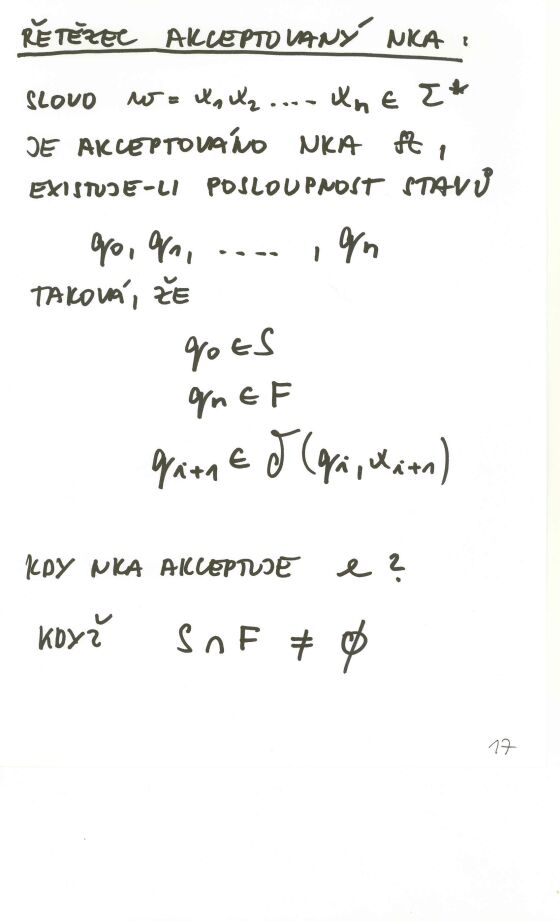 ŘETĚZEC AKCEPTOVANÝ NKA:
SLOVO w = x₁x₂ .... xₙ ∈ Σ*
JE AKCEPTOVÁNO NKA A,
EXISTUJE-LI POSLOUPNOST STAVŮ
q₀, q₁, ...., qₙ
TAKOVÁ, ŽE
q₀ ∈ S
qₙ ∈ F
qᵢ₊₁ ∈ δ(qᵢ, xᵢ₊₁)
KDY NKA AKCEPTUJE e?
KDYŽ S ∩ F ≠ ∅
17